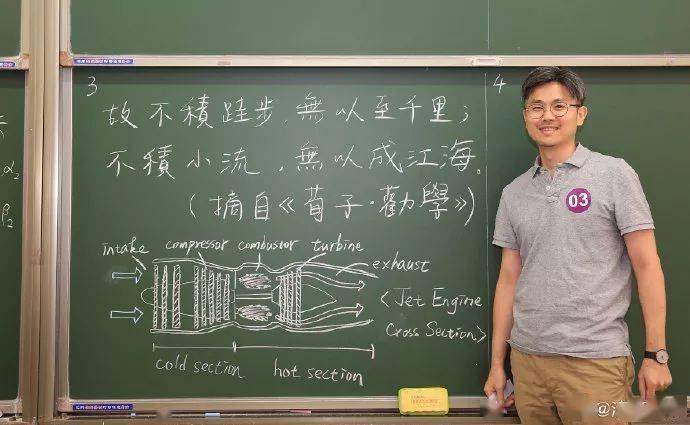 3
故不積跬步,無以至千里;
不積小流,無以成江海。
(摘自《荀子·勸學》)
intake compressor combustor turbine
exhaust
<Jet Engine
Cross Section>
cold section hot section
4
03
α₂
β₂